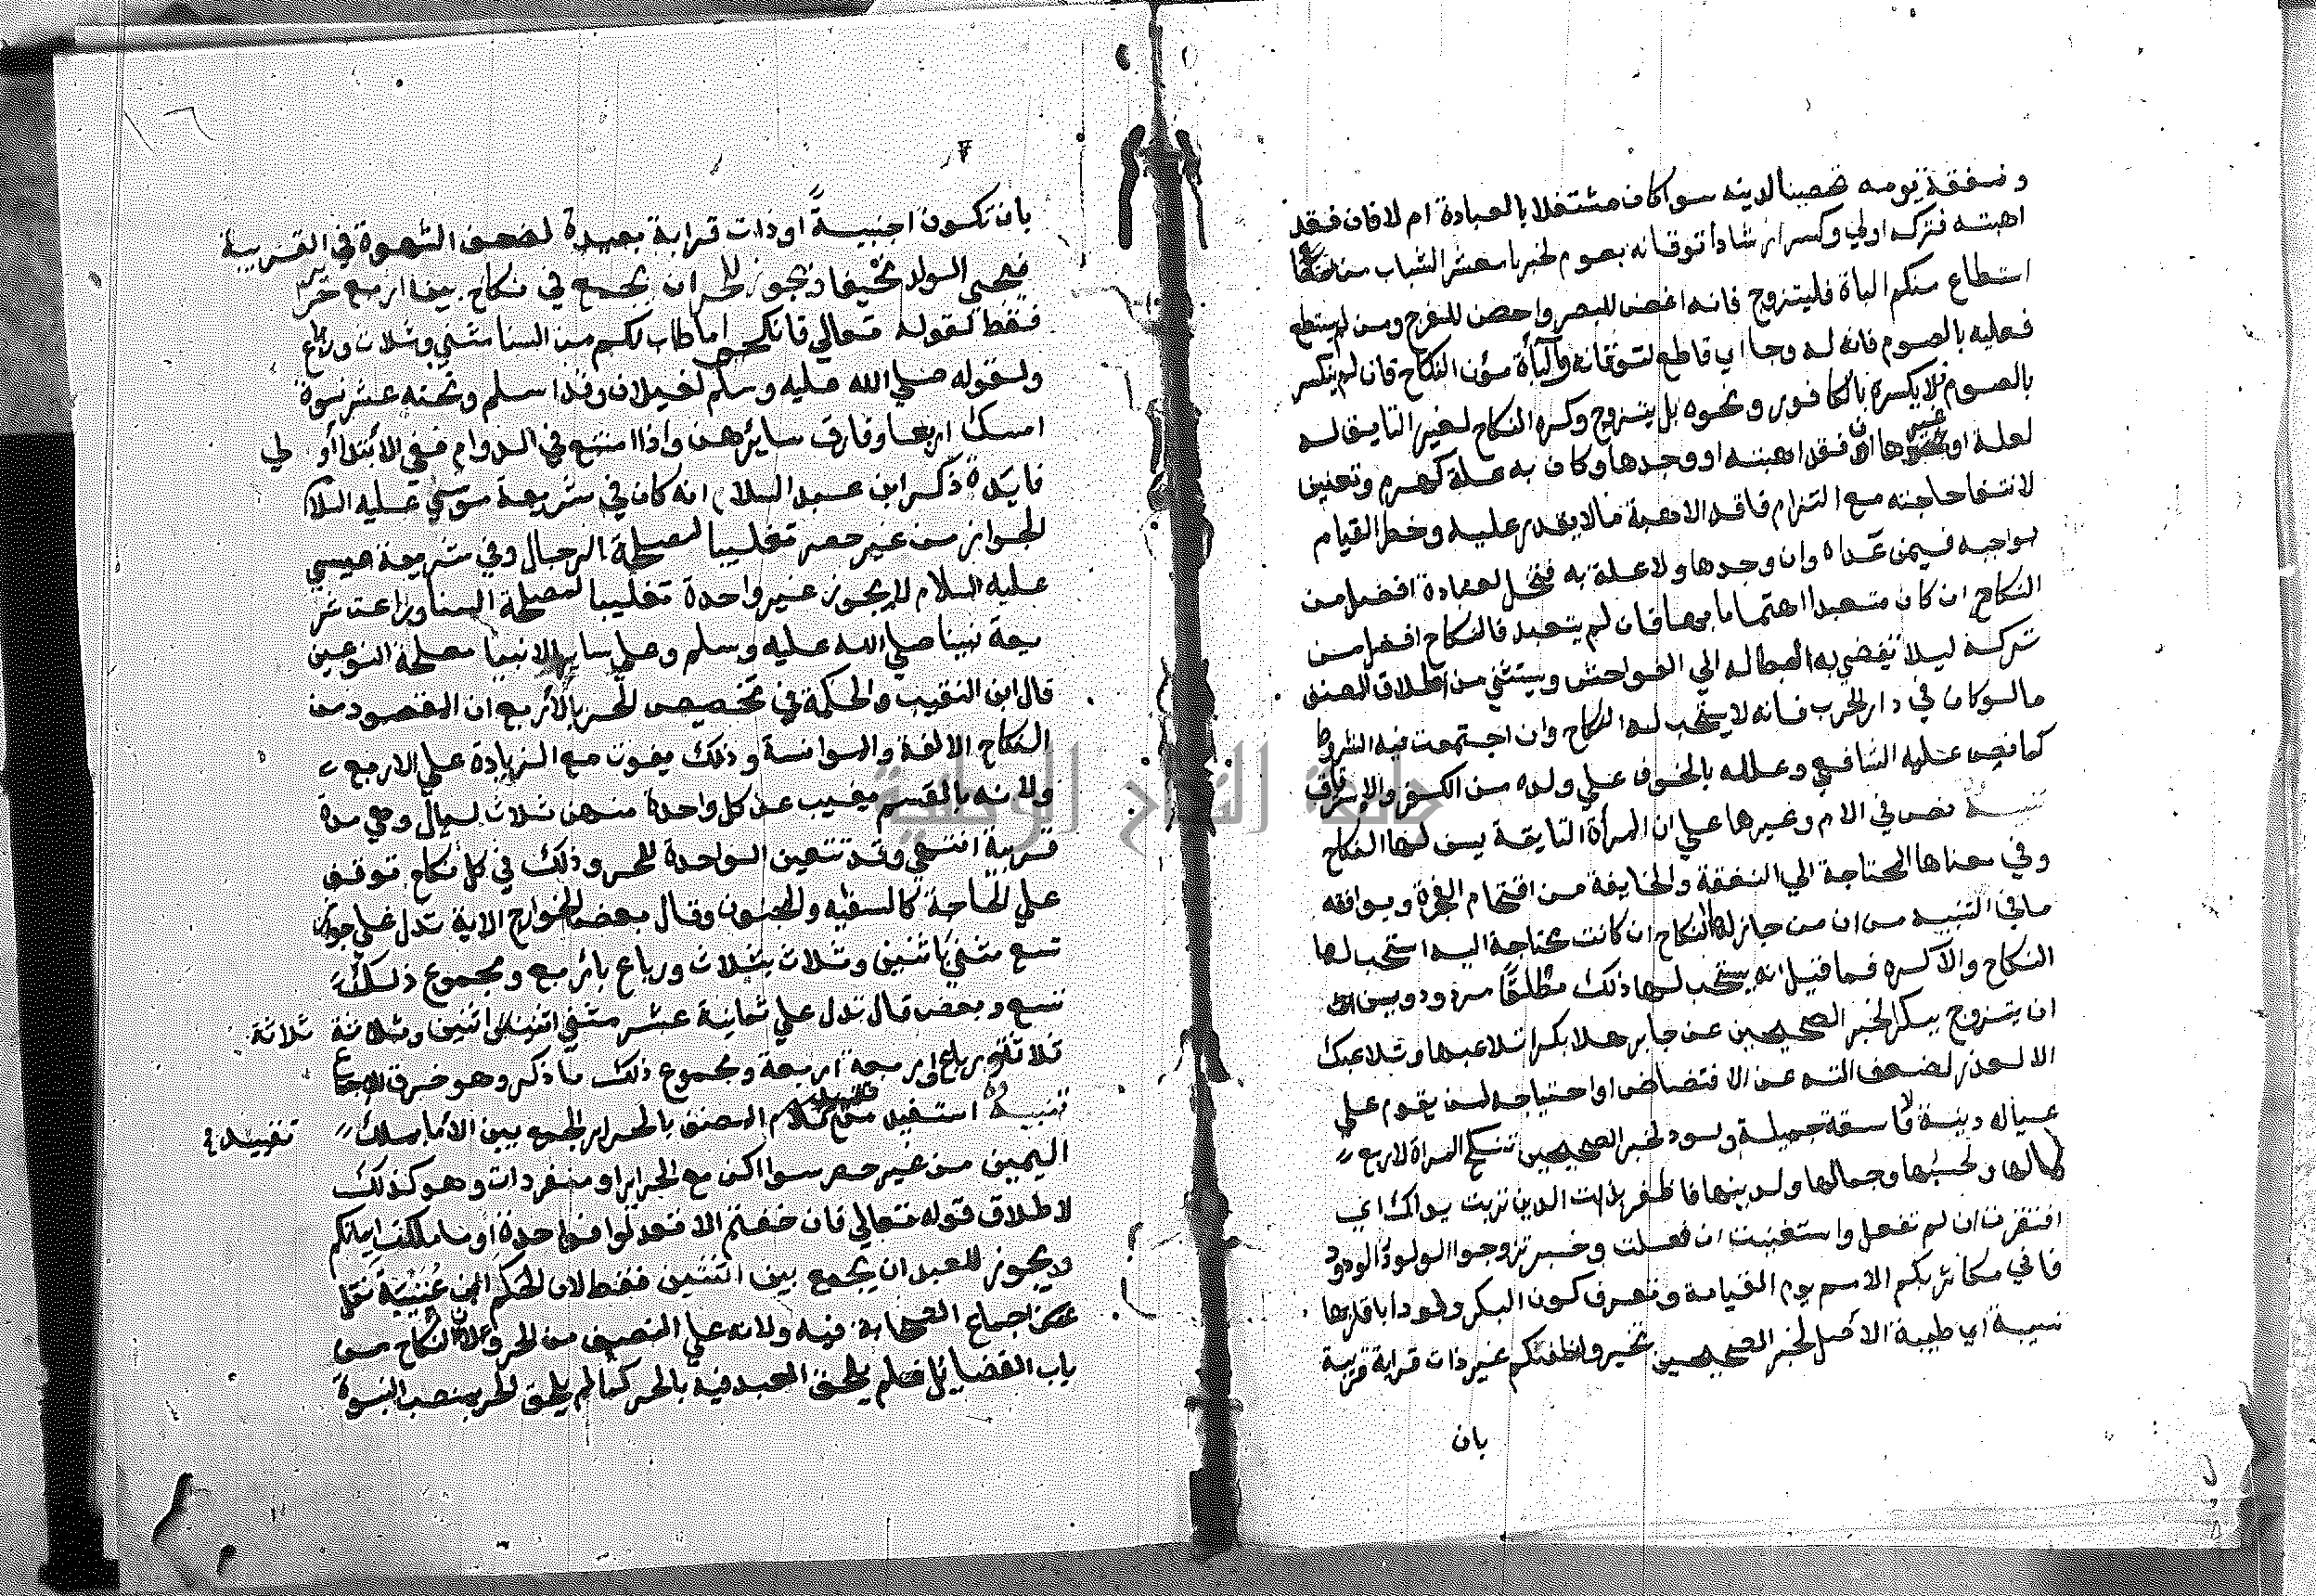 ونفقة يومه تحصينا لدينه سوا كان مشتغلا بالعبادة ام لا فان فقد
اهبته فتركه اولي وكسر ارشادا توقانه بصوم لخبر يا معشر الشباب من
استطاع منكم الباة فليتزوج فانه اغض للبصر واحصن للفرج ومن لم يستطع
فعليه بالصوم فانه له وجا اي قاطع لتوقانه والباءة مؤن النكاح فان لم ينكسر
بالصوم فلا يكسره بالكافور ونحوه بل يتزوج وكره النكاح لغير التايق له
لعلة او غيرها ان فقد اهبته او وجدها وكان به علة كهرم وتعنين
لانتفا حاجته مع التزام فاقد الاهبة مالا يقدر عليه وخطر القيام
بواجبه فيمن عداه وان وجدها ولا علة به فتخل لعبادة افضل من
النكاح ان كان متعبدا اهتماما بها فان لم يتعبد فالنكاح افضل من
تركه ليلا تفضي به البطاله الي الفواحش ويستثني من اطلاق المصنف
ما لو كان في دار الحرب فانه لا يستحب له النكاح وان اجتمعت فيه الشروط
كما نص عليه الشافعي وعلله بالخوف علي ولده من الكفر والاسترقاق
تنبيه نص في الام وغيرها علي ان المرأة التايقة يسن لها النكاح
وفي معناها المحتاجة الي النفقة والخايفة من اقتحام الفجرة ويوافقه
ما في التنبيه من ان من جاز لها النكاح ان كانت محتاجة اليه استحب لها
النكاح والا كره فما قيل انه يستحب لها ذلك مطلقا مردود ويسن
ان يتزوج ببكر لخبر الصحيحين عن جابر هلا بكرا تلاعبها وتلاعبك
الا لعذر لضعف التـه عن الافتضاض او احتياجه لمن يقوم علي
عياله دينة لا فاسقة جميلة ولود لخبر الصحيحين تنكح المراة لاربع
لمالها ولحسبها وجمالها ولدينها فاظفر بذات الدين تربت يداك اي
افتقرت ان لم تفعل واستغنيت ان فعلت وخبر تزوجوا الولود الودود
فاني مكاثر بكم الامم يوم القيامة وتعرف كون البكر ولودا باقاربها
نسيبة اي طيبة الاصل لخبر الصحيحين تخيروا لنطفكم غير ذات قرابة قريبة
بان
بان تكون اجنبية او ذات قرابة بعيدة لضعف الشهوة في القريبة
فيجي الولد نحيفا ويجوز للحر ان يجمع في نكاح بين اربع حراير
فقط لقوله تعالي فانكحوا ما طاب لكم من النسا مثني وثلاث ورباع
ولقوله صلي الله عليه وسلم لغيلان وقد اسلم وتحته عشر نسوة
امسك اربعا وفارق سايرهن واذا امتنع في الدوام ففي الابتدا اولي
فايدة ذكر ابن عبد السلام انه كان في شريعة موسي عليه السلام
الجواز من غير حصر تغليبا لمصلحة الرجال وفي شريعة عيسي
عليه السلام لا يجوز غير واحدة تغليبا لمصلحة النسا وراعت شر
يعة نبينا صلي الله عليه وسلم وعلي ساير الانبيا مصلحة النوعين
قال ابن النقيب والحكمة في تخصيص الحر بالاربع ان المقصود من
النكاح الالفة والموانسة وذلك يفوت مع الزيادة علي الاربع
ولانه بالقسم يغيب عن كل واحدة منهن ثلاث ليال وهي مدة
قريبة انتهي وقد تتعين الواحدة للحر وذلك في كل نكاح توقف
علي الحاجة كالسفيه والمجنون وقال بعض الخوارج الاية تدل علي جواز
تسع مثني باثنين وثلاث بثلاث ورباع باربع ومجموع ذلك
تسع وبعض قال تدل علي ثمانية عشر مثني اثنين اثنين وثلاثة ثلاثة
ثلاثة ورباع اربعة اربعة ومجموع ذلك ما ذكر وهو خرق للاجماع
تنبيه استفيد من تقييد كلام المصنف بالحراير الجمع بين الاما بملك تقييده
اليمين من غير حصر سوا اكن مع الحراير او منفردات وهو كذلك
لاطلاق قوله تعالي فان خفتم الا تعدلوا فواحدة او ما ملكت ايمانكم
ويجوز للعبد ان يجمع بين اثنتين فقط لان الحكم ابن عتيبة نقل
عن اجماع الصحابة فيه ولانه علي النصف من الحر ولان النكاح من
باب الفضايل فلم يلحق العبد فيه بالحر كما لم يلحق الحر بمنصب النبوة